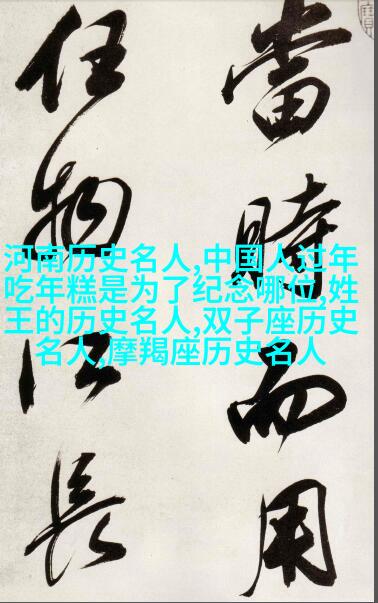 當時而用
任物以長
河南历史名人,中国人过年
吃年糕是为了纪念哪位,姓
王的历史名人,双子座历史
名人,摩羯座历史名人